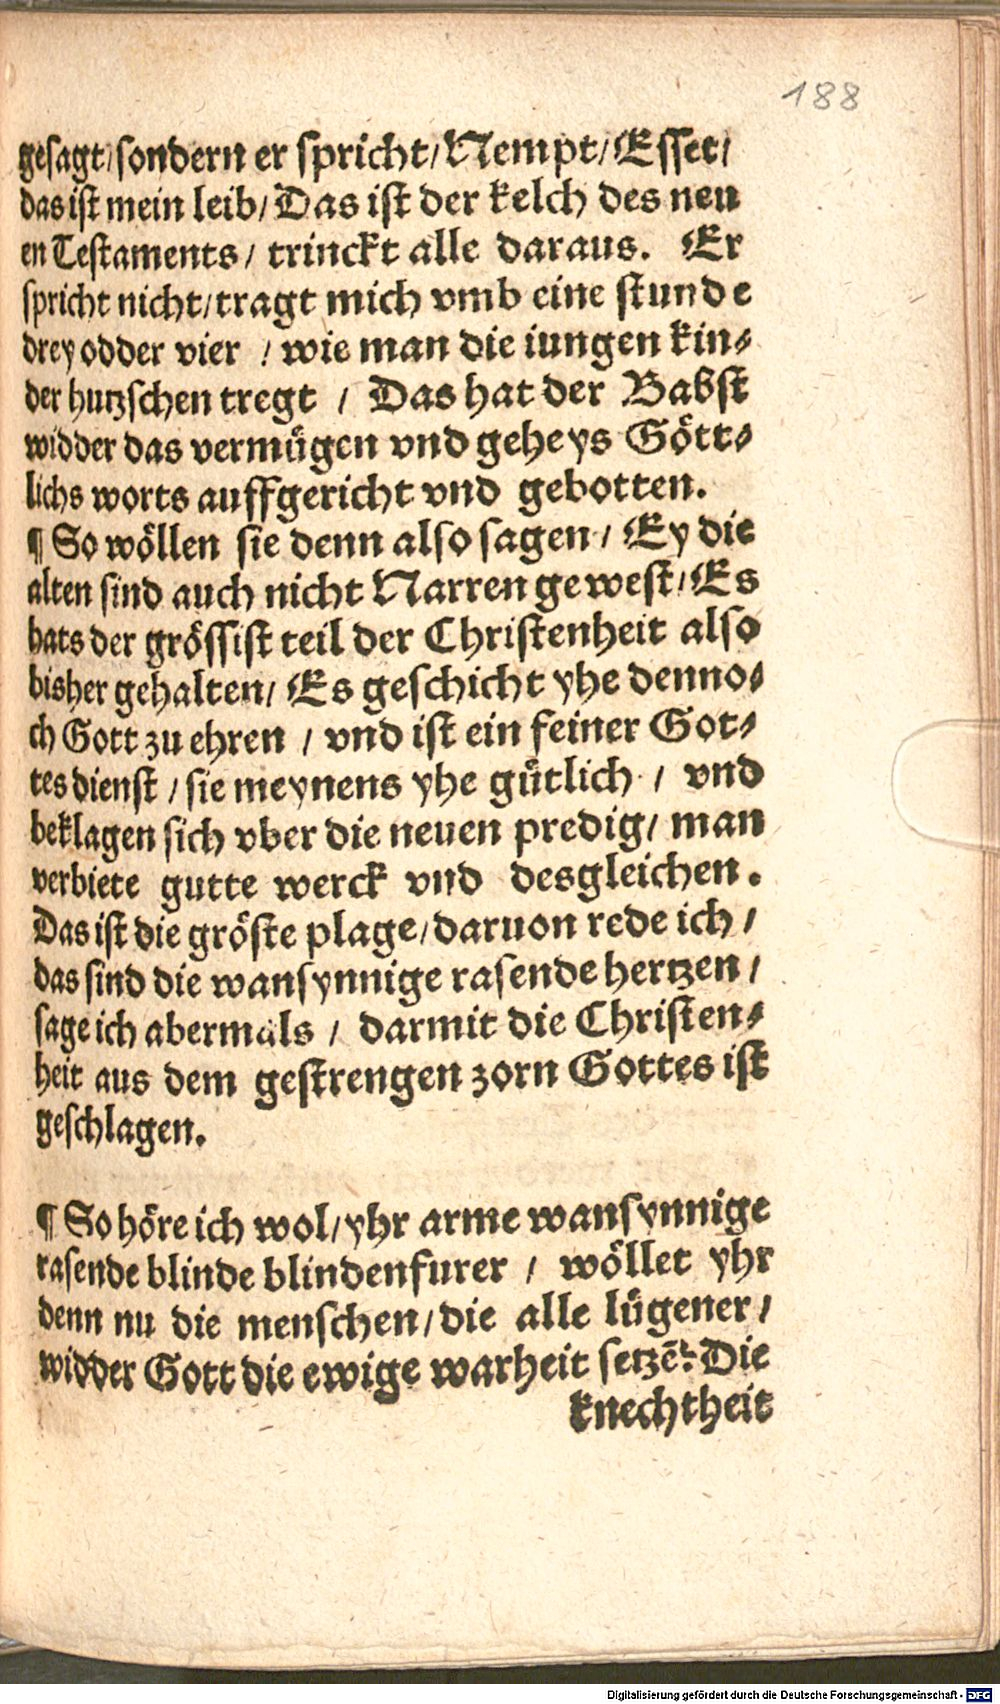 188
gesagt/sondern er spricht/Nempt/Esset/
das ist mein leib/Das ist der kelch des neu
en Testaments/ trinckt alle daraus. Er
spricht nicht/tragt mich vmb eine stunde
drey odder vier / wie man die iungen kin⸗
der hutzschen tregt / Das hat der Babst
widder das vermügen vnd geheys Gött⸗
lichs worts auffgericht vnd gebotten.
¶ So wöllen sie denn also sagen/ Ey die
alten sind auch nicht Narren gewest/Es
hats der grössist teil der Christenheit also
bisher gehalten/ Es geschicht yhe denno⸗
ch Gott zu ehren / vnd ist ein feiner Got⸗
tes dienst / sie meynens yhe gütlich / vnd
beklagen sich vber die neuen predig/ man
verbiete gutte werck vnd desgleichen.
Das ist die gröste plage/daruon rede ich/
das sind die wansynnige rasende hertzen/
sage ich abermals / darmit die Christen⸗
heit aus dem gestrengen zorn Gottes ist
geschlagen.
¶ So höre ich wol/yhr arme wansynnige
rasende blinde blindenfurer / wöllet yhr
denn nu die menschen/die alle lügener/
widder Gott die ewige warheit setzē? Die
knechtheit
Digitalisierung gefördert durch die Deutsche Forschungsgemeinschaft - DFG